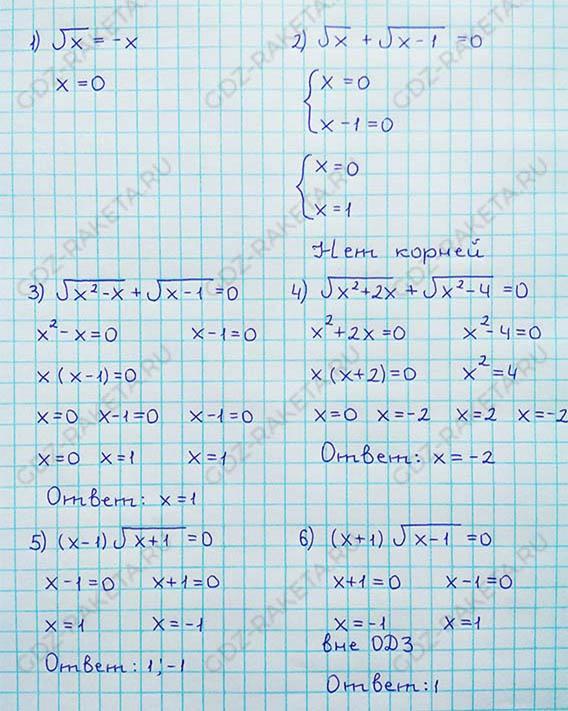 1) √x = -x
x = 0
2) √x + √x-1 = 0
{ x = 0
x - 1 = 0
{ x = 0
x = 1
Нет корней
3) √x²-x + √x-1 = 0
x² - x = 0 x - 1 = 0
x (x-1) = 0
x = 0 x-1=0 x-1=0
x = 0 x = 1 x = 1
Ответ: x = 1
4) √x²+2x + √x²-4 = 0
x²+2x = 0 x²-4=0
x (x+2) = 0 x² = 4
x = 0 x = -2 x = 2 x = -2
Ответ: x = -2
5) (x-1) √x+1 = 0
x - 1 = 0 x+1 = 0
x = 1 x = -1
Ответ: 1; -1
6) (x+1) √x-1 = 0
x+1 = 0 x-1=0
x = -1 x = 1
вне ОДЗ
Ответ: 1
GDZ-RAKETA.RU